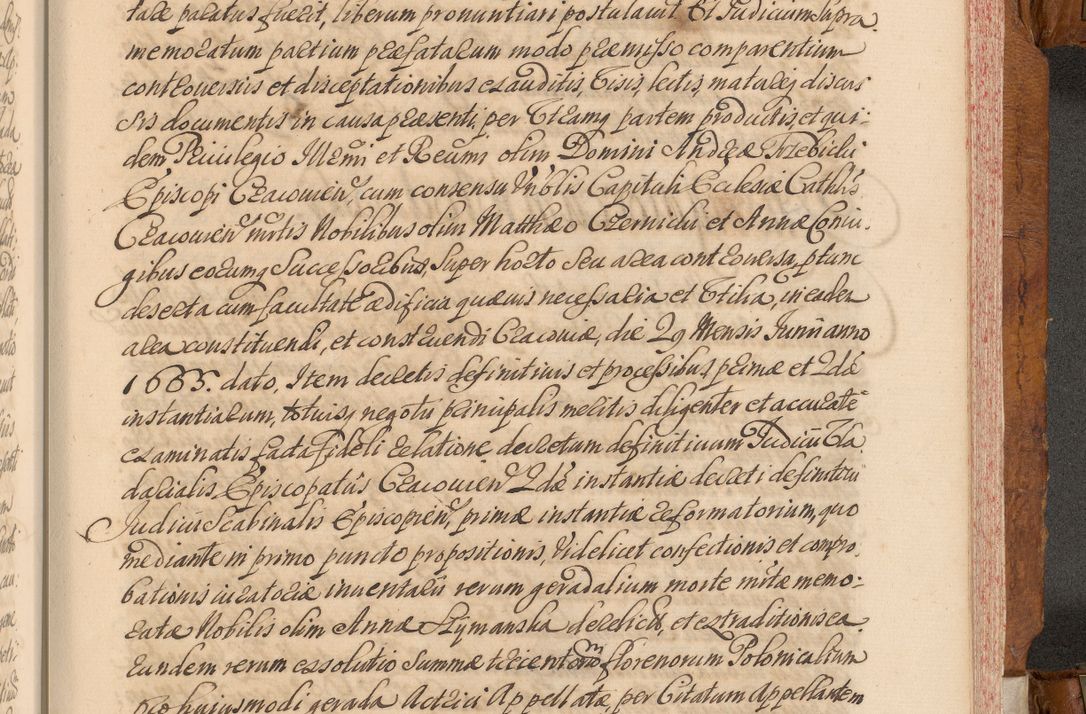 tale paratus fuerit, liberum pronuntiari postulavit. Et Judicium supra
memoratum partium præfatarum modo præmisso comparentium
controversiis et disceptationibus exauditis, Visis, lectis, matureq discus
sis documentis in causa præsenti, per Utramq partem productis, et qui:
dem Privilegio Illrmi et Reumi olim Domini Andreæ Trzebicki
Episcopi Cracovien, cum consensu Vnblis Capituli Ecclesiæ Cathlis
Cracovien nrtis Nobilibus olim Matthæo Czernicki et Annæ Coniu:
gibus eorumq Successoribus, super horto seu area controversa, ptunc
deserta cum facultate ædificia quævis necessaria et Utilia, in eadem
area construendi, et construendi Cracoviæ, die 29 Mensis Junii anno
1665. dato, Item decretis definitivis et processibus primæ et 2dæ
instantiarum, totiusq negotii principalis meritis diligenter et accurate
examinatis, facta fideli relatione, decretum definitivum Judicii Vla
darialis Episcopatus Cracovien 2dæ instantiæ decreti definitivi
Judicii Scabinalis Episcopien, primæ instantiæ reformatorium, quo
mediante in primo puncto propositionis, Videlicet confectionis et compro:
bationis iuratoriæ inventarii rerum geradalium morte nrtæ memo:
ratæ Nobilis olim Annæ Slymanska derelict, et extraditionis ea:
rundem rerum exsolutio Summæ trecentorum florenorum Polonicalium
pro hujusmodi gerada Actrici Appellatæ, per Citatum Appellantem